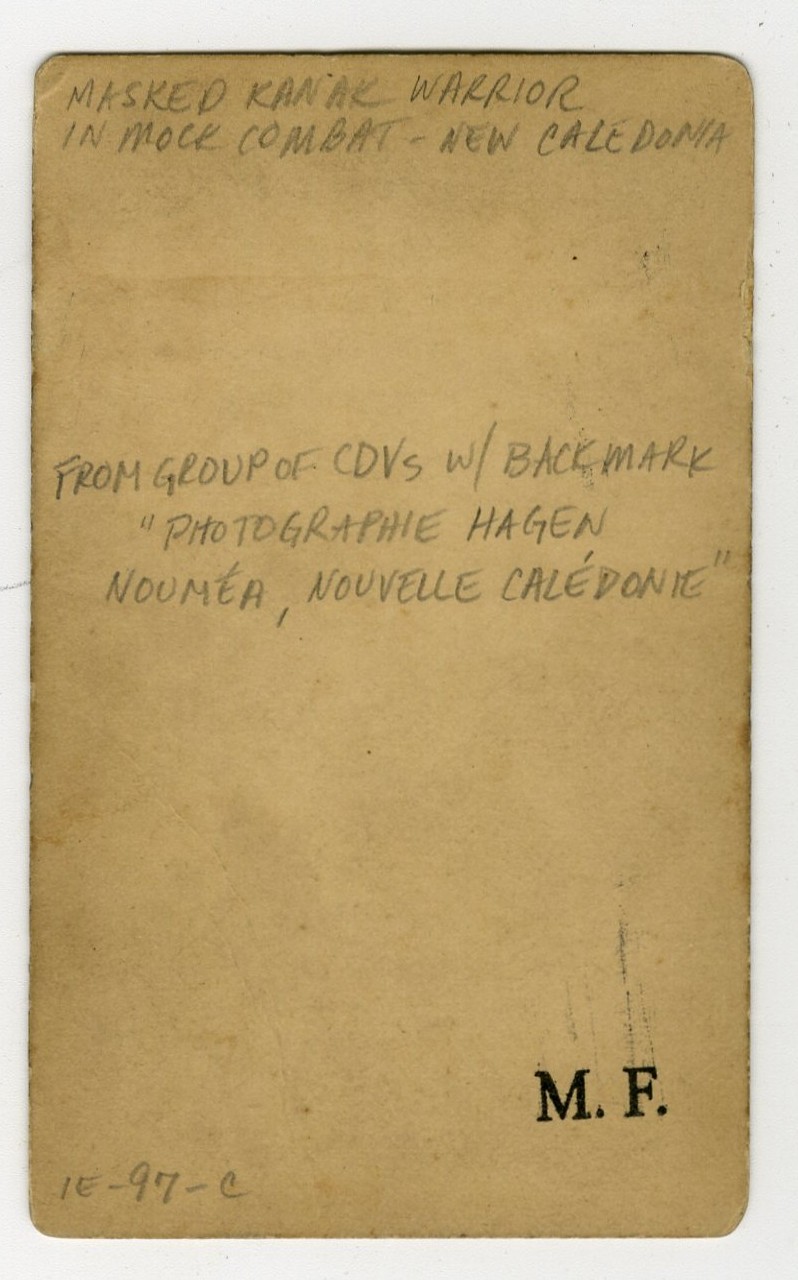 MASKED KANAK WARRIOR
IN MOCK COMBAT - NEW CALEDONIA
FROM GROUP OF CDVs W/ BACKMARK
"PHOTOGRAPHIE HAGEN
NOUMÉA, NOUVELLE CALÉDONIE"
M. F.
1E-97-C